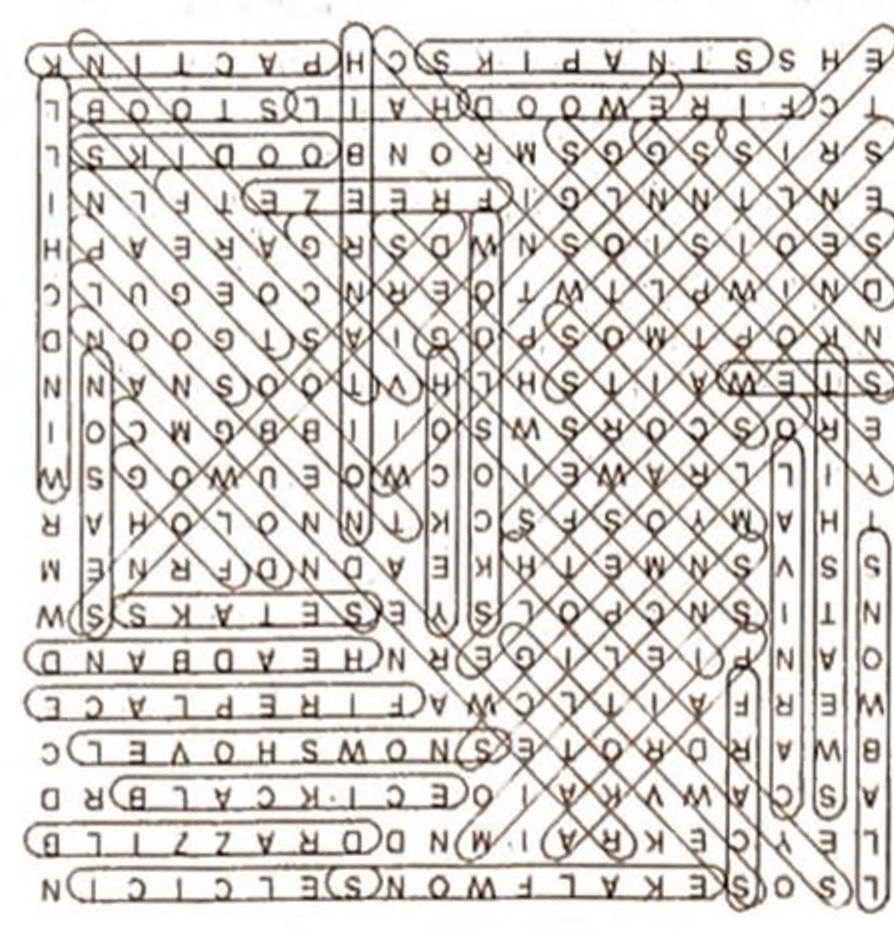 N I C I C L E S N O W F L A K E S O S L
B L I Z Z A R D D N M I A R K E C Y E L
D R B L A C K I C E O I A K V W A C S A
C L E V O H S W O N S E T O R D R A W B
E C A L P E R I F A W C L T I A F R E W
D N A B D A E H N R E G I L E I P N A O
M S S K A T E S E Y S L O P C N S I T N
W E N R F D N D A E K H T E M N S V S S
R A H O L O N N T K C S F S O Y M A H T
W S G O W U E O W C O I E W A R L L I Y
I O C M G B B I I O S W S R O C S O R E
N N A N S O O T V H L H S T I A W E T S
D N O O G T S A I G O P S O M T P O K N
C L U G E O C N R E O T W T L P W I N D
H P A E R A G R S D W N S O I S I O E S
I N L F T E Z E E R F I G L N N T L N E
L S K I D O O B N O R M S G G S S I R S
L B O O T S L I A H D O O W E R I F C T
K N I T C A P H C S K I P A N T S S H E